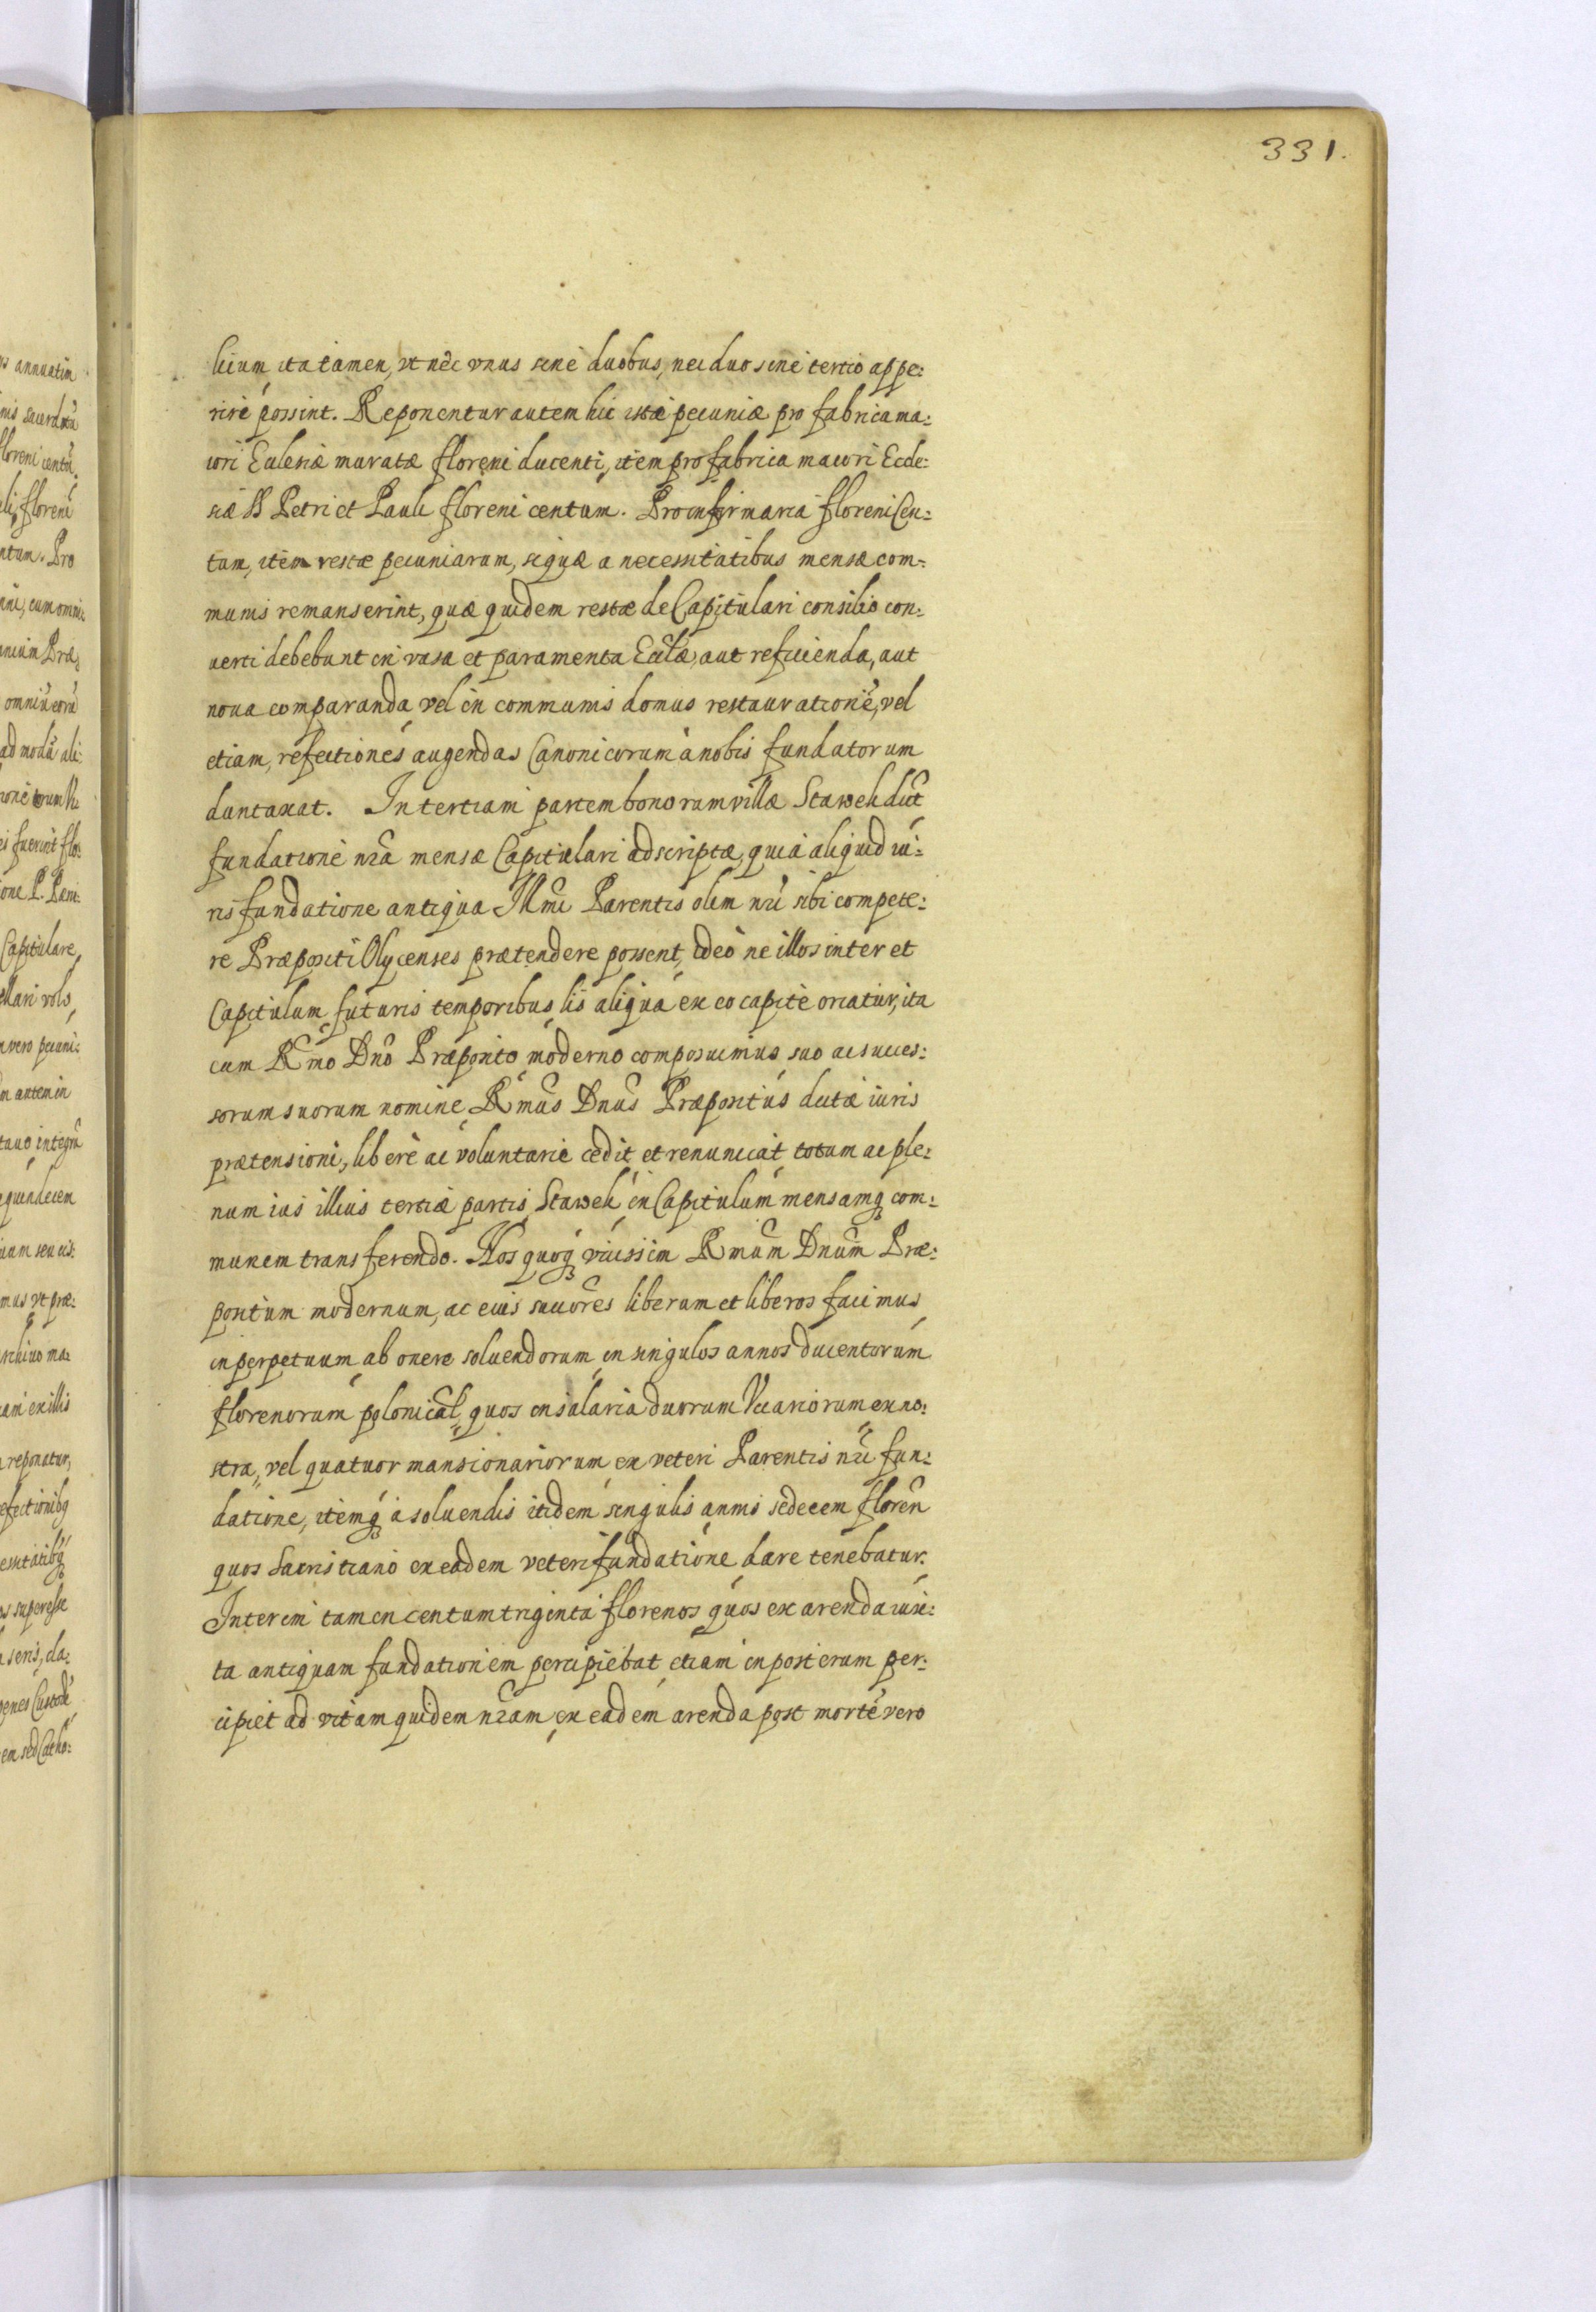 331.
licum ita tamen, vt nec vnus sine duobus, nec duo sine tertio appe:
rire possint. Reponentur autem hic istæ pecuniæ pro fabrica ma:
iori Ecclesiæ muratæ floreni ducenti, item pro fabrica maiori Eccle:
siæ SS Petri et Pauli floreni centum. Pro infirmaria floreni Cen:
tum, item restæ pecuniarum, siquæ a necessitatibus mensæ com:
munis remanserint, quæ quidem restæ de Capitulari consilio con:
uerti debebunt in vasa et paramenta Eccłæ, aut reficienda, aut
noua comparanda, vel in communis domus restaurationē, vel
etiam, refectiones augendas Canonicorum à nobis fundatorum
duntaxat. In tertiam partem bonorum villæ Stawek dict
fundatione nra mensæ Capitulari adscriptæ, quia aliquid iu:
ris fundatione antiqua Illmi Parentis olim nri sibi compete:
re Præpositi Olycenses prætendere possent, ideò ne illos inter et
Capitulum futuris temporibus lis aliqua ex eo capite oriatur, ita
cum Rmo Dno Præposito moderno composuimus, suo ac succes:
sorum suorum nomine Rmus Dnus Præpositus dictæ iuris
prætensioni, liberè ac voluntarie cedit et renunciat totum ac ple:
num ius illius tertiæ partis Stawek in Capitulum mensamq com:
munem transferendo. Nos quoq vicissim Rmum Dnum Præ:
positum modernum, ac eius succores liberum et liberos facimus
in perpetuum ab onere soluendorum in singulos annos ducentorum
florenorum polonical, quos in salaria duorum Vicariorum ex no:
stra, vel quatuor mansionariorum ex veteri Parentis nri fun:
datione, itemq à soluendis itidem singulis annis sedecem floren
quos Sacristiano ex eadem veteri fundatione dare tenebatur.
Interim tamen centum triginta florenos quos ex arenda iux:
ta antiquam fundationem percipiebat etiam in posterum per:
cipiet ad vitam quidem nram ex eadem arenda post mortē vero